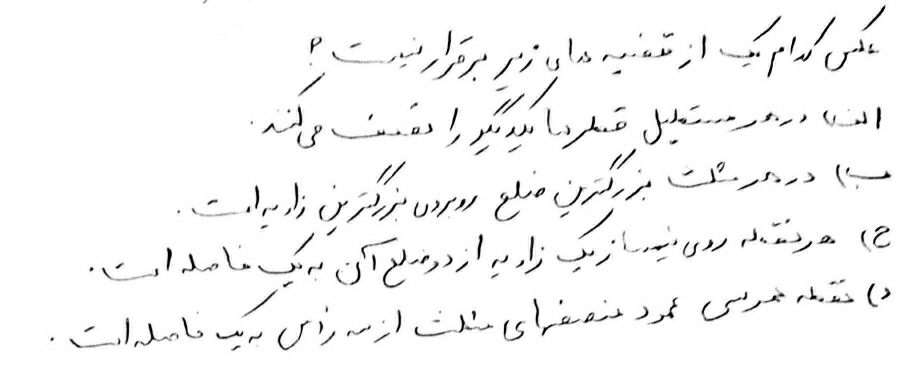 عکس کدام یک از قضیه های زیر برقرار نیست؟
الف) در هر مستطیل قطرها یکدیگر را نصف می‌کنند.
ب) در هر مثلث بزرگترین ضلع روبروی بزرگترین زاویه است.
ج) هر نقطه روی نیمساز یک زاویه از دو ضلع آن به یک فاصله است.
د) نقطه همرسی عمود منصفهای مثلث از سه رأس به یک فاصله است.